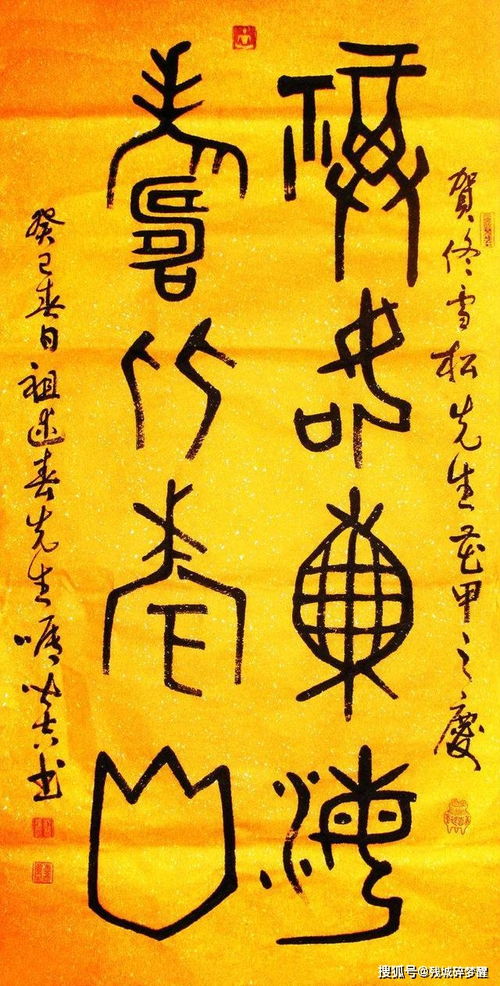 賀佟雪松先生花甲之慶
福如東海
壽比南山
癸巳春日祖述春先生嘱书
搜狐号@残城碎梦醒